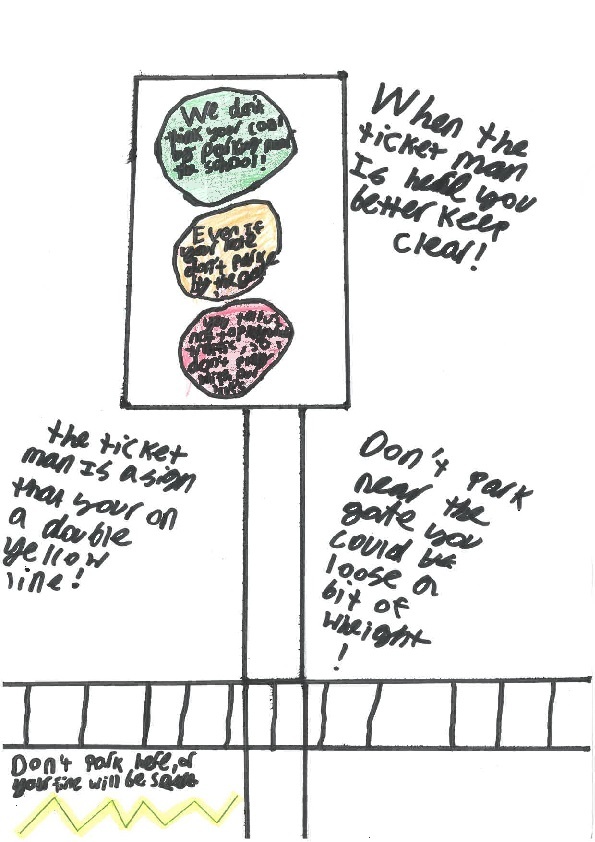 We don't
think your cool
by parking near
the school!
Even if
your late
don't park
by the gate
you
traffic, so
don't
with our
When the
ticket man
Is here you
better keep
clear!
the ticket
man Is a sign
that your on
a double
yellow
line!
Don't park
near the
gate you
could be
loose a
bit of
wheight
!
Don't park here, or
your fine will be